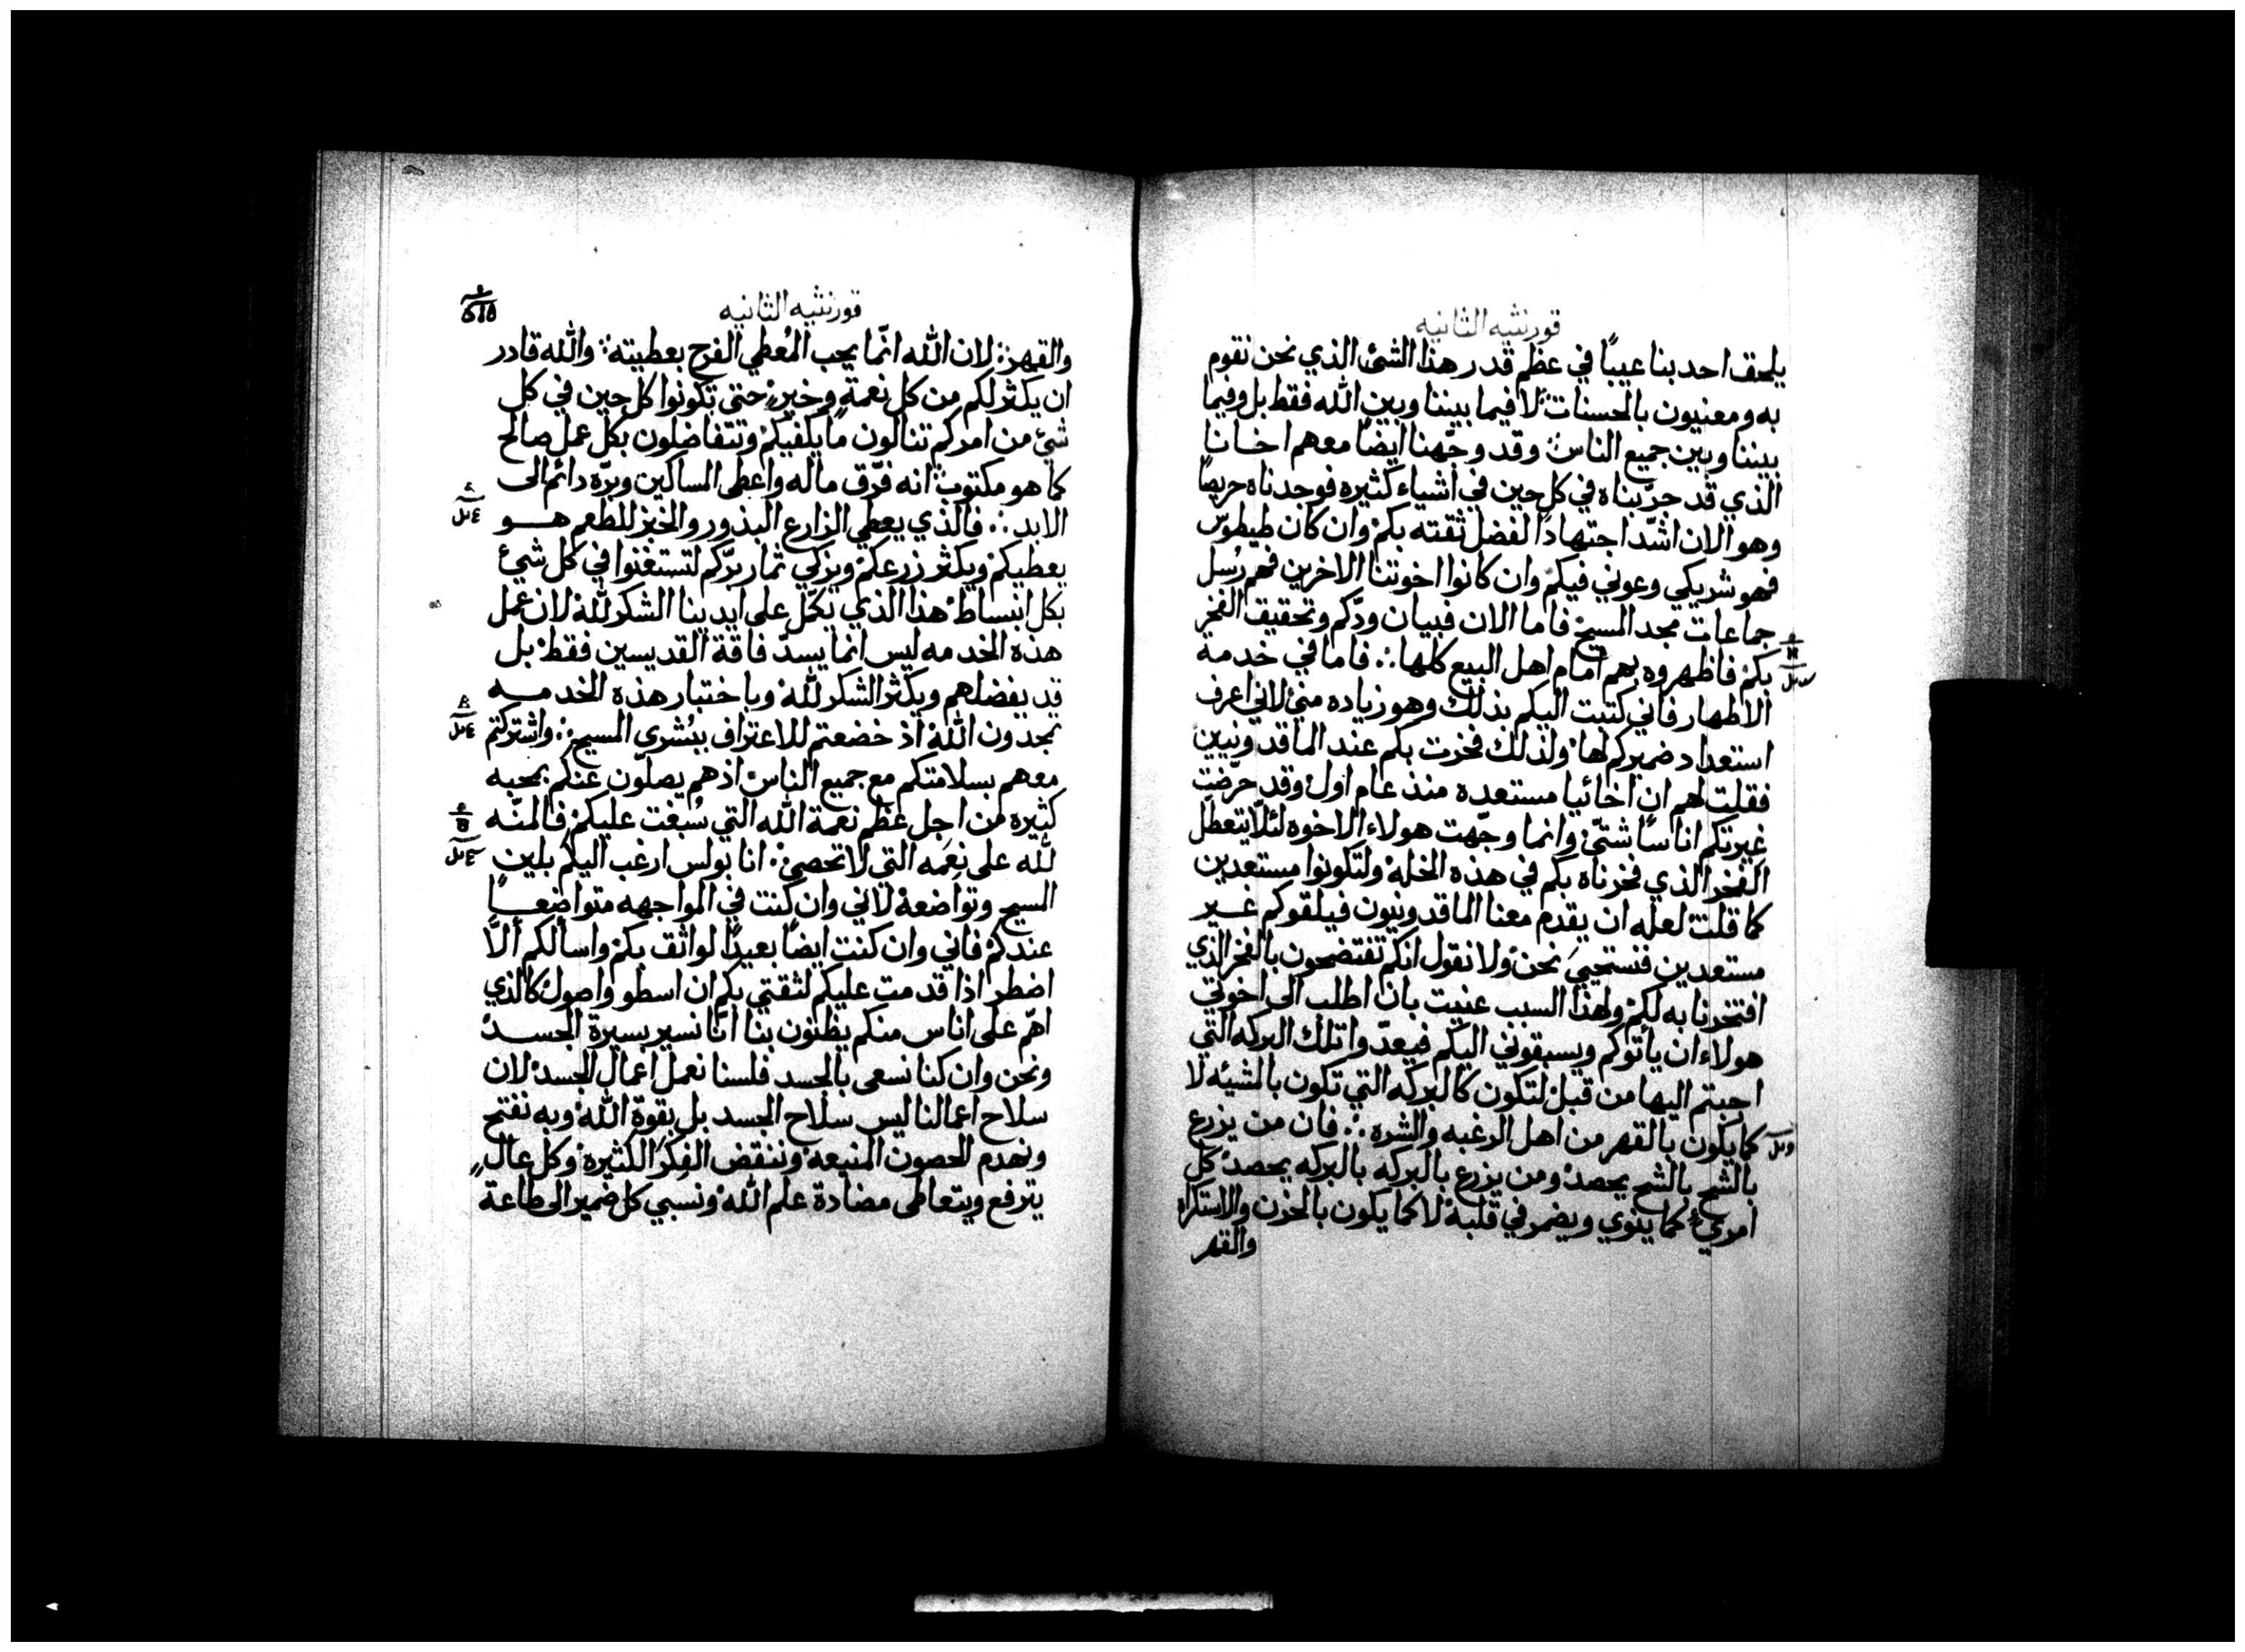 قورنثيه الثانيه
يلحق احد بنا عيبًا في عظم قدر هذا الشئ الذي نحن نقوم
به ومعنيون بالحسنات لا فيما بيننا وبين الله فقط بل وفيما
بيننا وبين جميع الناس وقد وجّهنا ايضًا معهم اخانا
الذي قد جرّبناه في كل حين في اشياء كثيره فوجدناه حريصًا
وهو الان اشدّ اجتهادًا لفضل ثقته بكم وان كان طيطوس
فهو شريكي وعوني فيكم وان كانوا اخوتنا الاخرين فهم رُسل
جماعات مجد المسيح فاما الان فبيان ودّكم وتحقيق الفخر
بكم فاظهروه بهم امام اهل البيع كلها ∴ فاما في خدمة
الاطهار فاني كتبت اليكم بذلك وهو زياده مني لاني اعرف
استعداد ضميركم لها ولذلك فخرت بكم عند الماقدونيين
فقلت لهم ان اخائيا مستعده منذ عام اول وقد حرّضت
غيرتكم اناسًا شتّي وانما وجّهت هولاء الاخوه لئلّا يتعطل
الفخر الذي فخرناه بكم في هذه الخلة ولتكونوا مستعدين
كما قلت لعله ان يقدم معنا الماقدونيون فيلقوكم غير
مستعدين فنستحيي نحن ولا نقول انكم تفتضحون بالفخر الذي
افتخرنا به لكم ولهذا السبب عنيت بان اطلب الى اخوتي
هولاء ان ياتوكم ويسبقوني اليكم فيعدّوا تلك البركه التي
اجبتم اليها من قبل لتكون كالبركه التي تكون بالمشيّه لا
كما يكون بالقهر من اهل الرغبه والشره ∴ فان من يزرع
بالشح بالشح يحصد ومن يزرع بالبركه بالبركه يحصد كل
امرئ كما ينوي ويضمر في قلبه لا كما يكون بالحزن والاستكراه
والقهر
قورنثيه الثانيه
والقهر لان الله انّما يحب المُعطي الفرح بعطيته والله قادر
ان يكثر لكم من كل نعمةٍ وخيرٍ حتى تكونوا كل حين في كل
شئ من امركم تنالون ما يكفيكم وتتفاضلون بكل عمل صالح
كما هو مكتوب انه فرّق ماله واعطى المساكين وبرّه دائم الى
الابد ∴ فالذي يعطي الزارع البذور والخبز للطعم هو
يعطيكم ويكثر زرعكم ويزكي ثمار برّكم لتستغنوا في كل شئ
بكل انبساط هذا الذي يكمّل على ايدينا الشكر لله لان عمل
هذه الخدمه ليس انما يسدّ فاقة القديسين فقط بل
قد يفضلهم ويكثر الشكر لله وباختبار هذه الخدمه
تمجدون الله اذ خضعتم للاعتراف ببُشرى المسيح واشتركتم
معهم بسلامتكم مع جميع الناس اذ هم يصلّون عنكم بمحبه
كثيره من اجل عظم نعمة الله التي سُبغت عليكم فالمنّه
لله على نعمه التي لا تحصى ∴ انا بولس ارغب اليكم بلين
المسيح وتواضعه لاني وان كنت في المواجهه متواضعًا
عندكم فاني وان كنت ايضًا بعيدًا لواثق بكم واسالكم ألّا
اضطر اذا قدمت عليكم لثقتي بكم ان اسطو واصول كالذي
اهمّ على اناس منكم يظنون بنا انّا نسير بسيرة الجسد
ونحن وان كنا نسعى بالجسد فلسنا نعمل اعمال الجسد لان
سلاح اعمالنا ليس سلاح الجسد بل بقوة الله وبه نفتح
ونهدم الحصون المنيعه وننقض الفكر الكثيره وكل عالٍ
يترفع ويتعاطى مضادة علم الله ونسبي كل ضمير الى طاعة